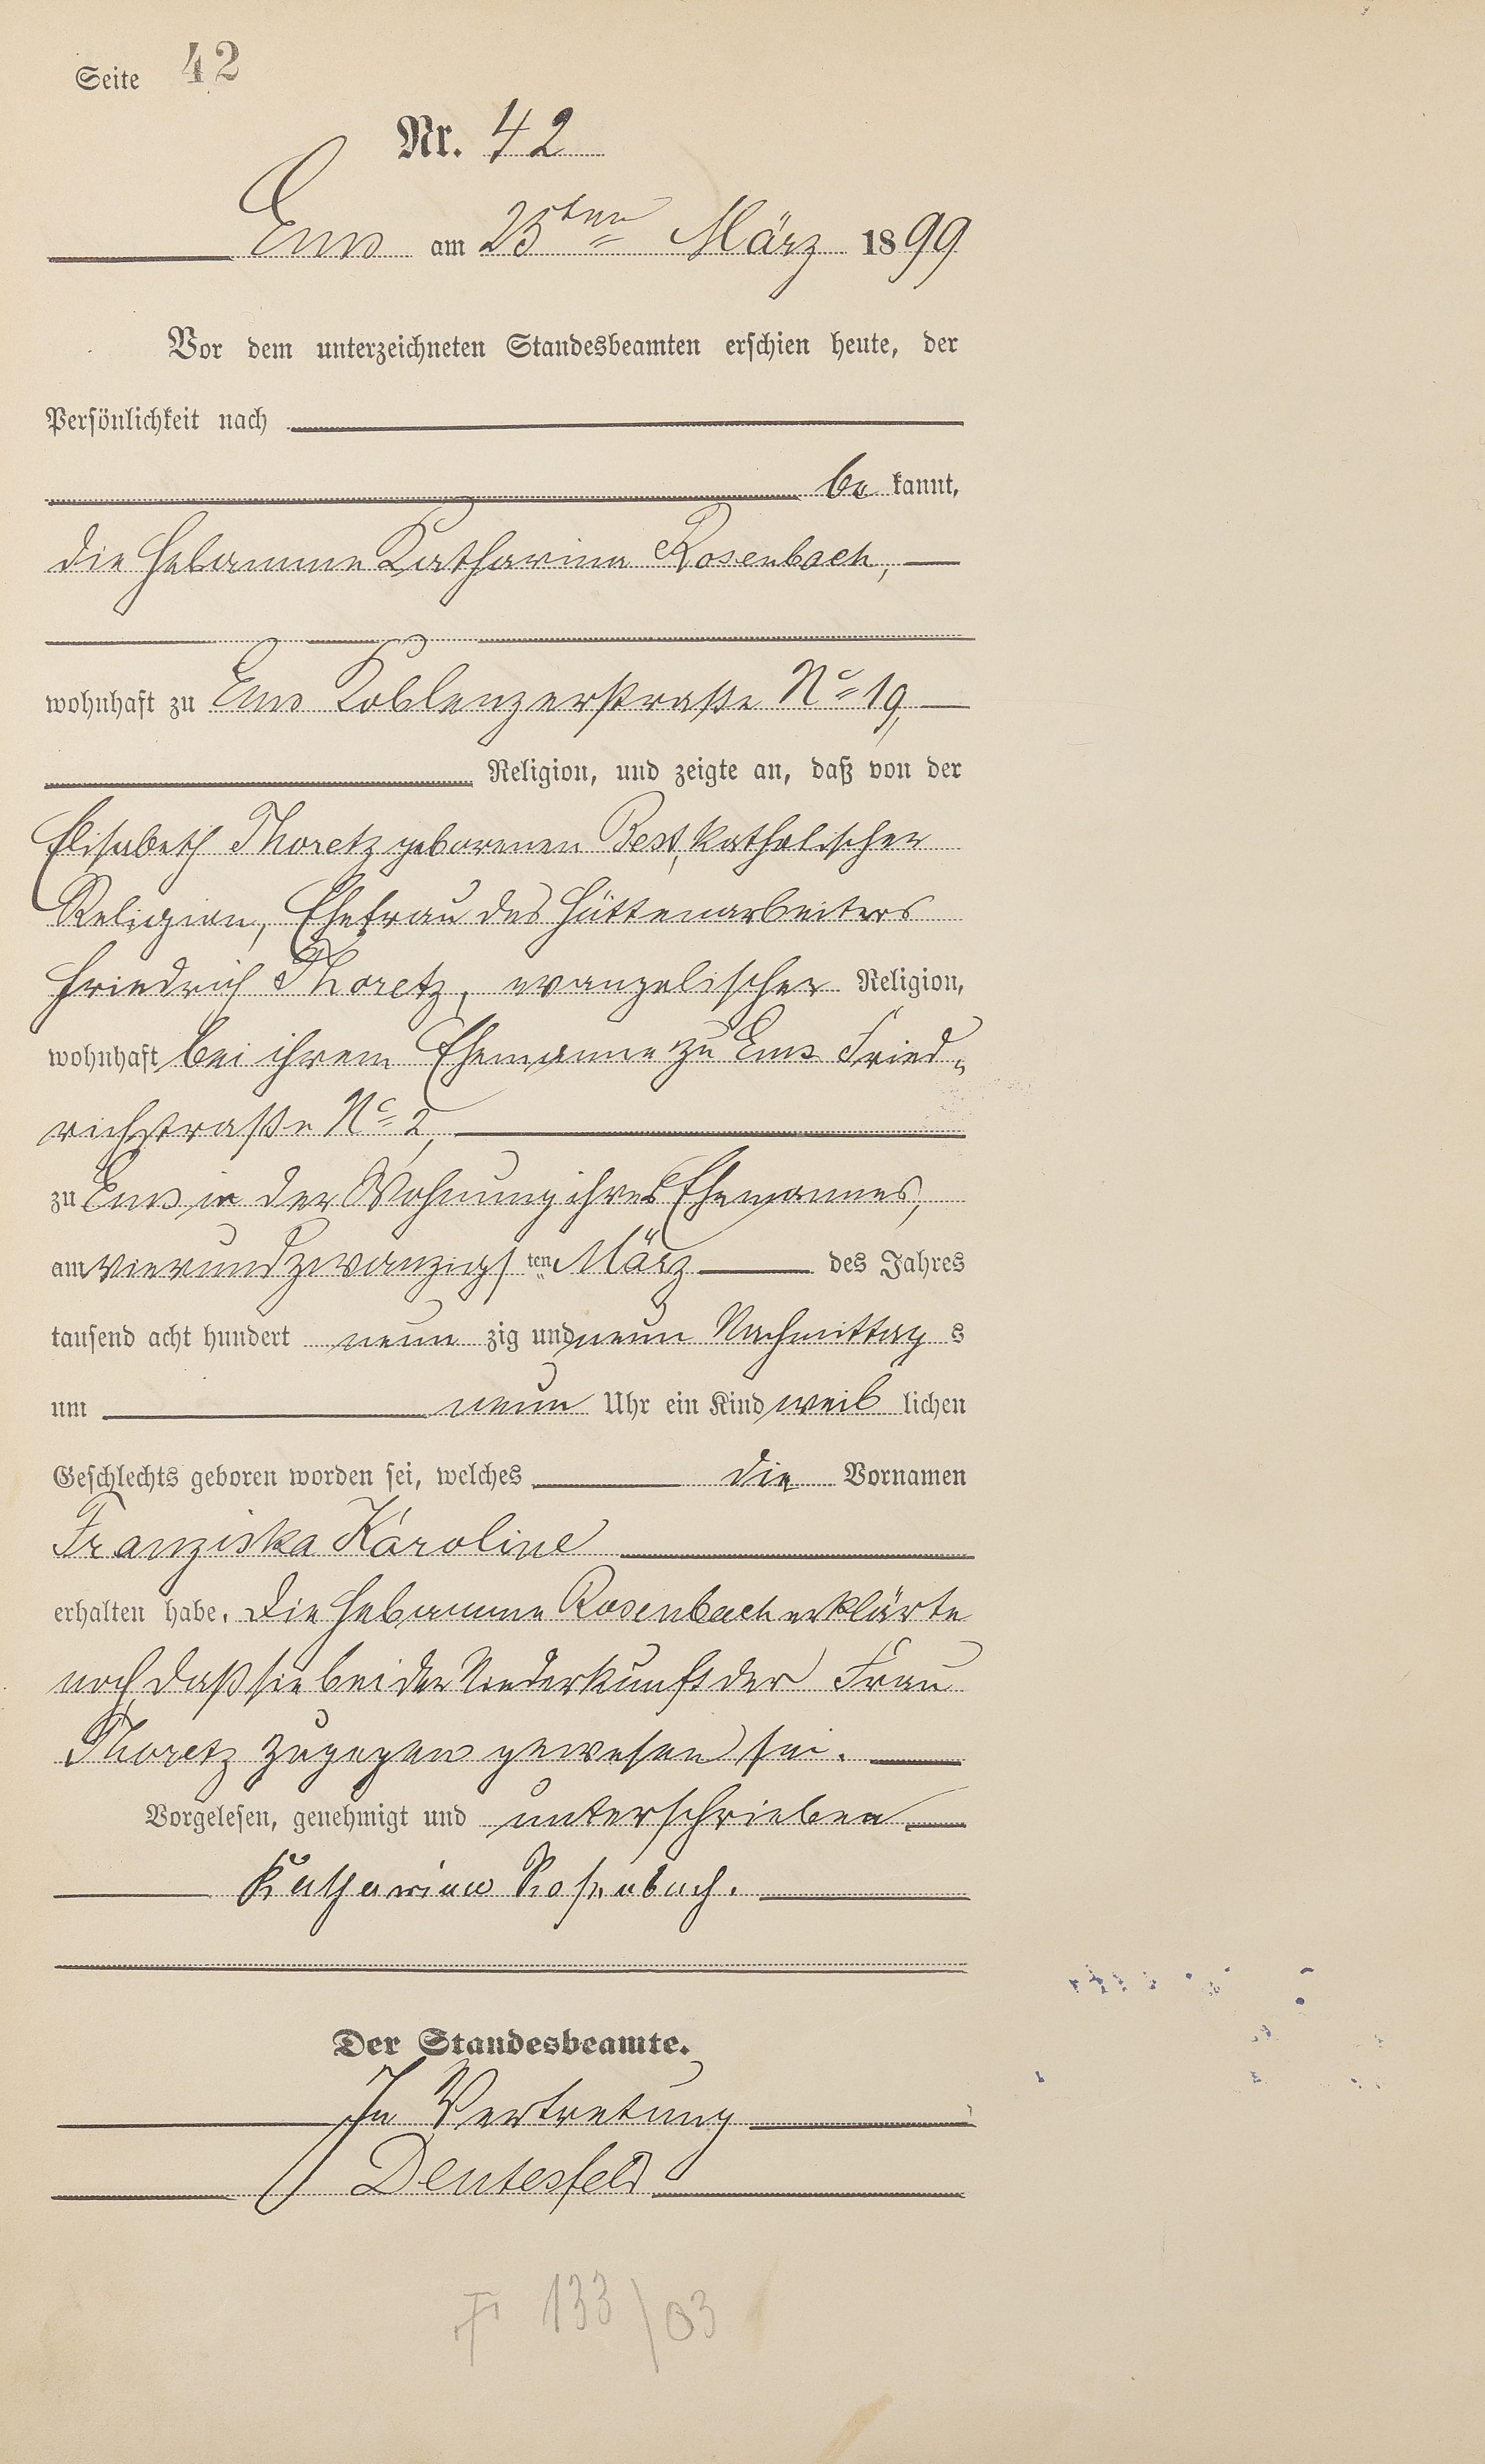 Seite 42
Nr. 42
Ems am 25ten März 1899
Vor dem unterzeichneten Standesbeamten erschien heute, der
Persönlichkeit nach
be kannt,
die Hebamme Katharina Rosenbach,
wohnhaft zu Ems Koblenzerstraße No 19,
Religion, und zeigte an, daß von der
Elisabeth Thoretz geborenen Best, katholischer
Religion, Ehefrau des Hüttenarbeiters
Friedrich Thoretz, evangelischer Religion,
wohnhaft bei ihrem Ehemanne zu Ems Fried„
richstraße No 2,
zu Ems in der Wohnung ihres Ehemannes,
am vierundzwanzigs ten März des Jahres
tausend acht hundert neun zig und neun Nachmittag s
um neun Uhr ein Kind weib lichen
Geschlechts geboren worden sei, welches die Vornamen
Franziska Karoline
erhalten habe. Die Hebamme Rosenbach erklärte
noch, daß sie bei der Niederkunft der Frau
Thoretz zugegen gewesen sei.
Vorgelesen, genehmigt und unterschrieben
Katharina Rosenbach.
Der Standesbeamte.
In Vertretung
Deutesfeld
† 133/03